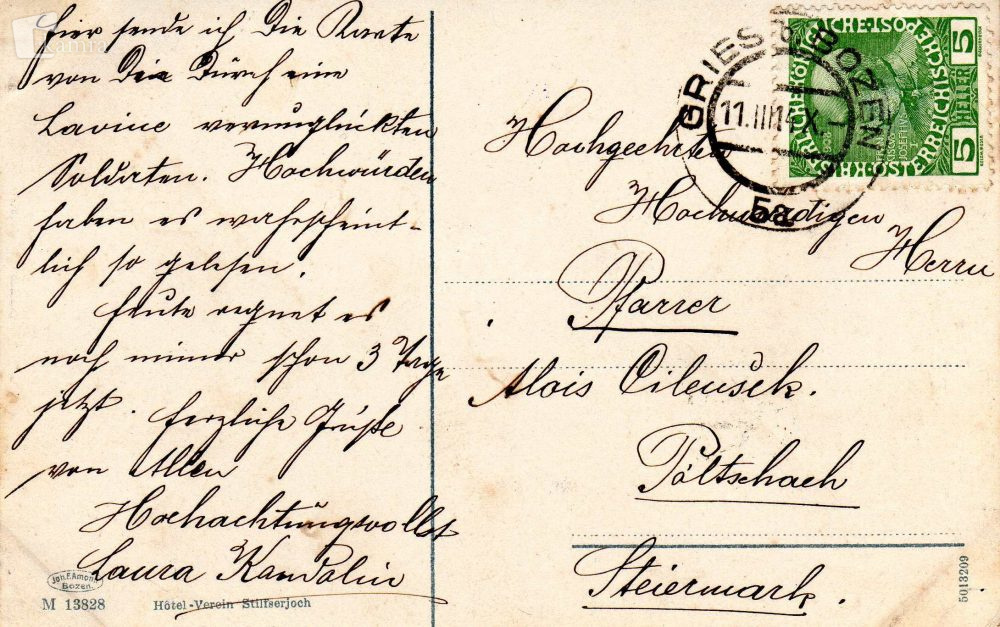 Hier sende ich Die Karte
von Die Dŭrch eine
Lavine verunglückten
Soldaten. Hochwürden
haben es wahrscheint-
lich so gelesen.
Heute regnet es
noch immer schon 3 Tage
jetzt. Herzliche Grüße
von Allen
Hochachtŭngsvollst
Laura
Joh. F. Amonn
Bozen.
M 13828 Hôtel-Verein Stilfserjoch
GRIES B. BOZEN
11.III.14.X
5a
5 HELLER 5
Hochgeehrten
Hochwürdigen
Herrn
Pfarrer
Alois Cilenšek.
Pöltschach
Steiermark.
5013209